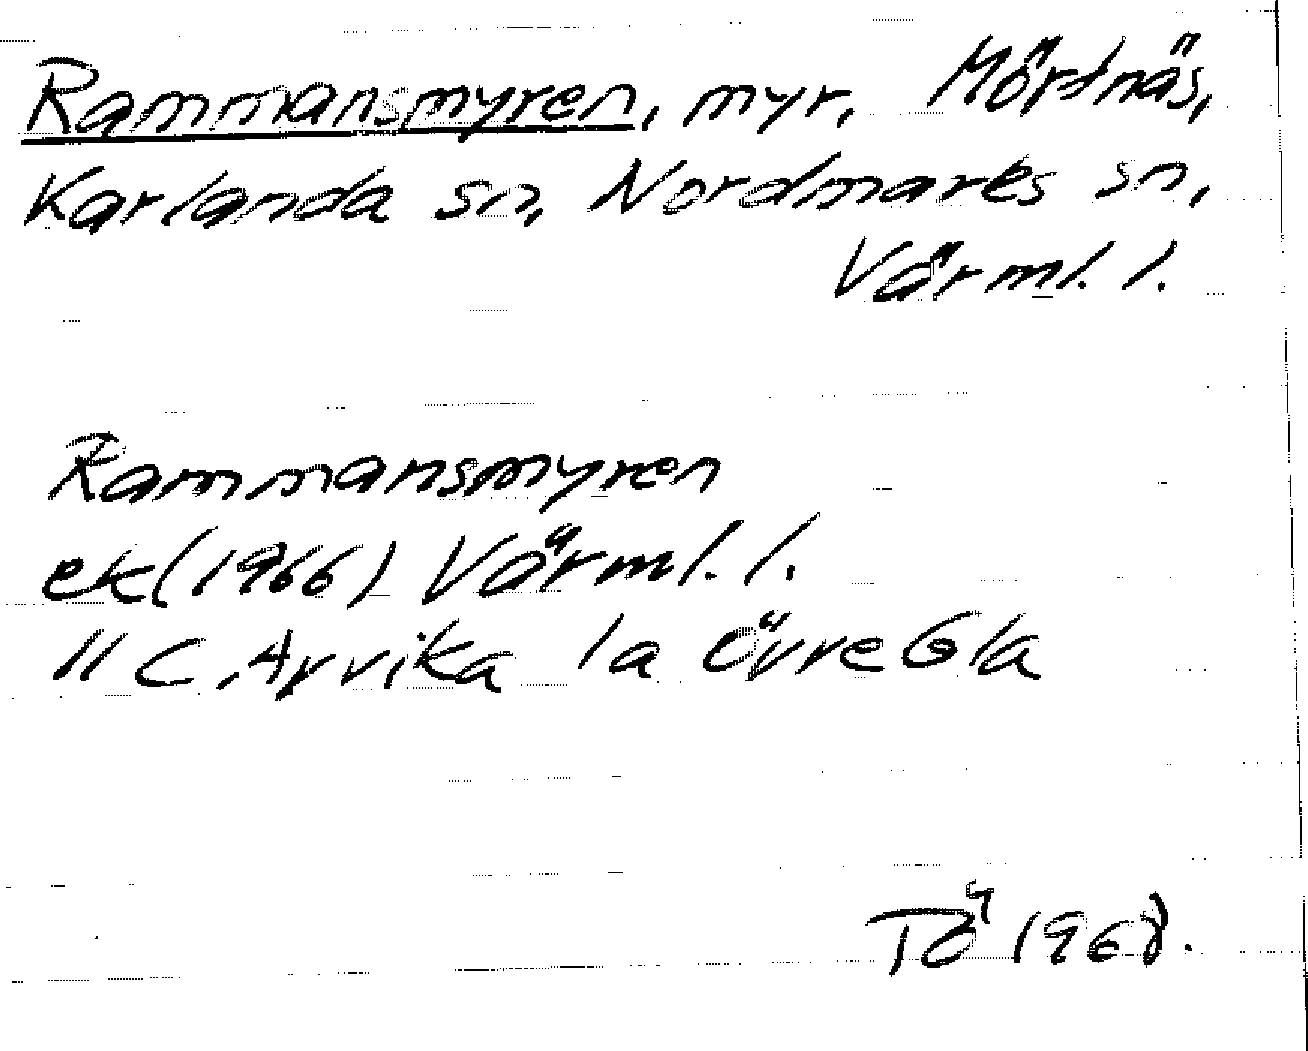 Rammansmyren, myr, Mörtnäs,
Karlanda sn, Nordmarks sn,
Värml. l.
Rammansmyren
ek (1966) Värml. l.
11 C Arvika 1a Övre Gla
TÖ 1968.